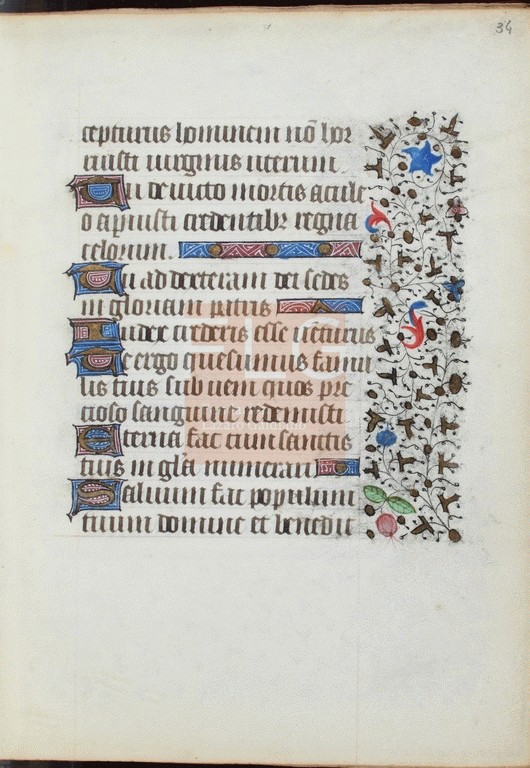 34
cepturus hominem nō hor
ruisti uirginis uterum.
Tu deuicto mortis acule
o apuisti credentibz regna
celorum.
Tu ad dexteram dei sedes
in gloriam patris
Iudex crederis esse uenturus
Te ergo quesumus famu
lis tuis subueni quos pre
cioso sanguine redemisti
Eterna fac cum sanctis
tuis in gla numerari
Saluum fac populum
tuum domine et benedic
FLG
Lázaro Galdiano